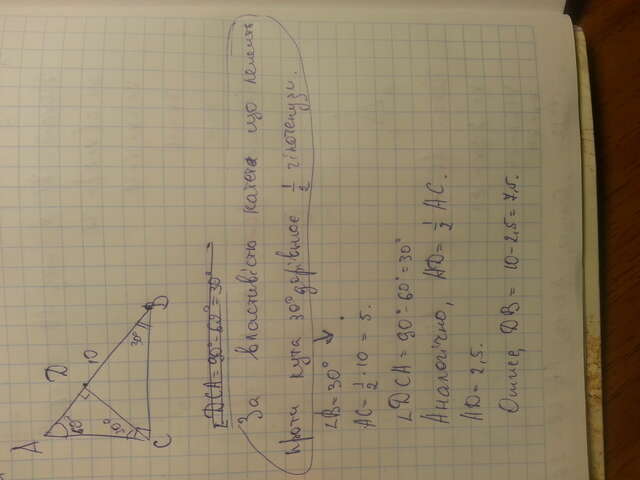 A
60°
D
10
30°
30°
C
B
∠DCA = 90° - 60° = 30°
За властивістю катета що лежить
проти кута 30° дорівнює 1/2 гіпотенузи.
∠B = 30°
AC = 1/2 · 10 = 5.
∠DCA = 90° - 60° = 30°
Аналогічно, AD = 1/2 AC.
AD = 2,5.
Отже, DB = 10 - 2,5 = 7,5.